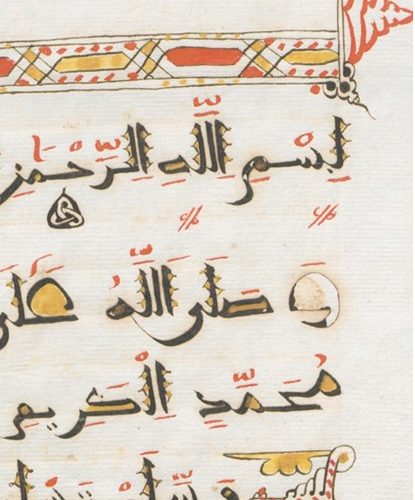 بِسْمِ اللَّهِ الرَّحْمَنِ
وَ صَلَّى اللَّهُ عَلَى
مُحَمَّدٍ الْكَرِيمِ